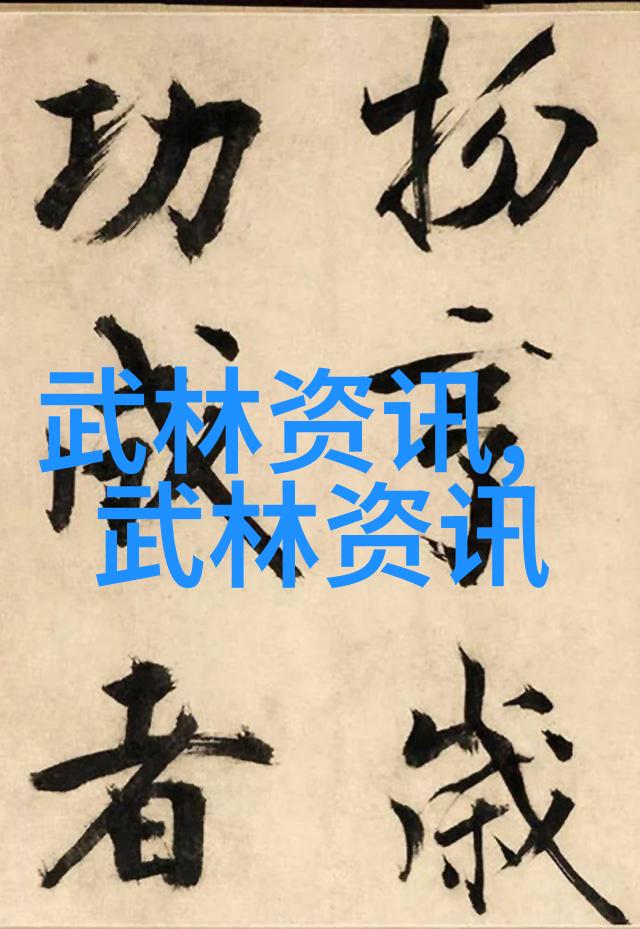 武林资讯,
武林资讯
歲
功成者